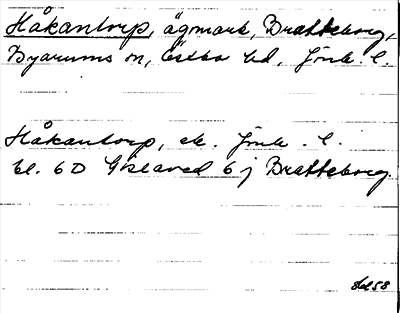 Håkantorp, ägomark, Bratteborg,
Byarums sn, Östbo hd, Jönk. l.
Håkantorp, ek. Jönk. l.
bl. 60 Gislaved 6 j Bratteborg.